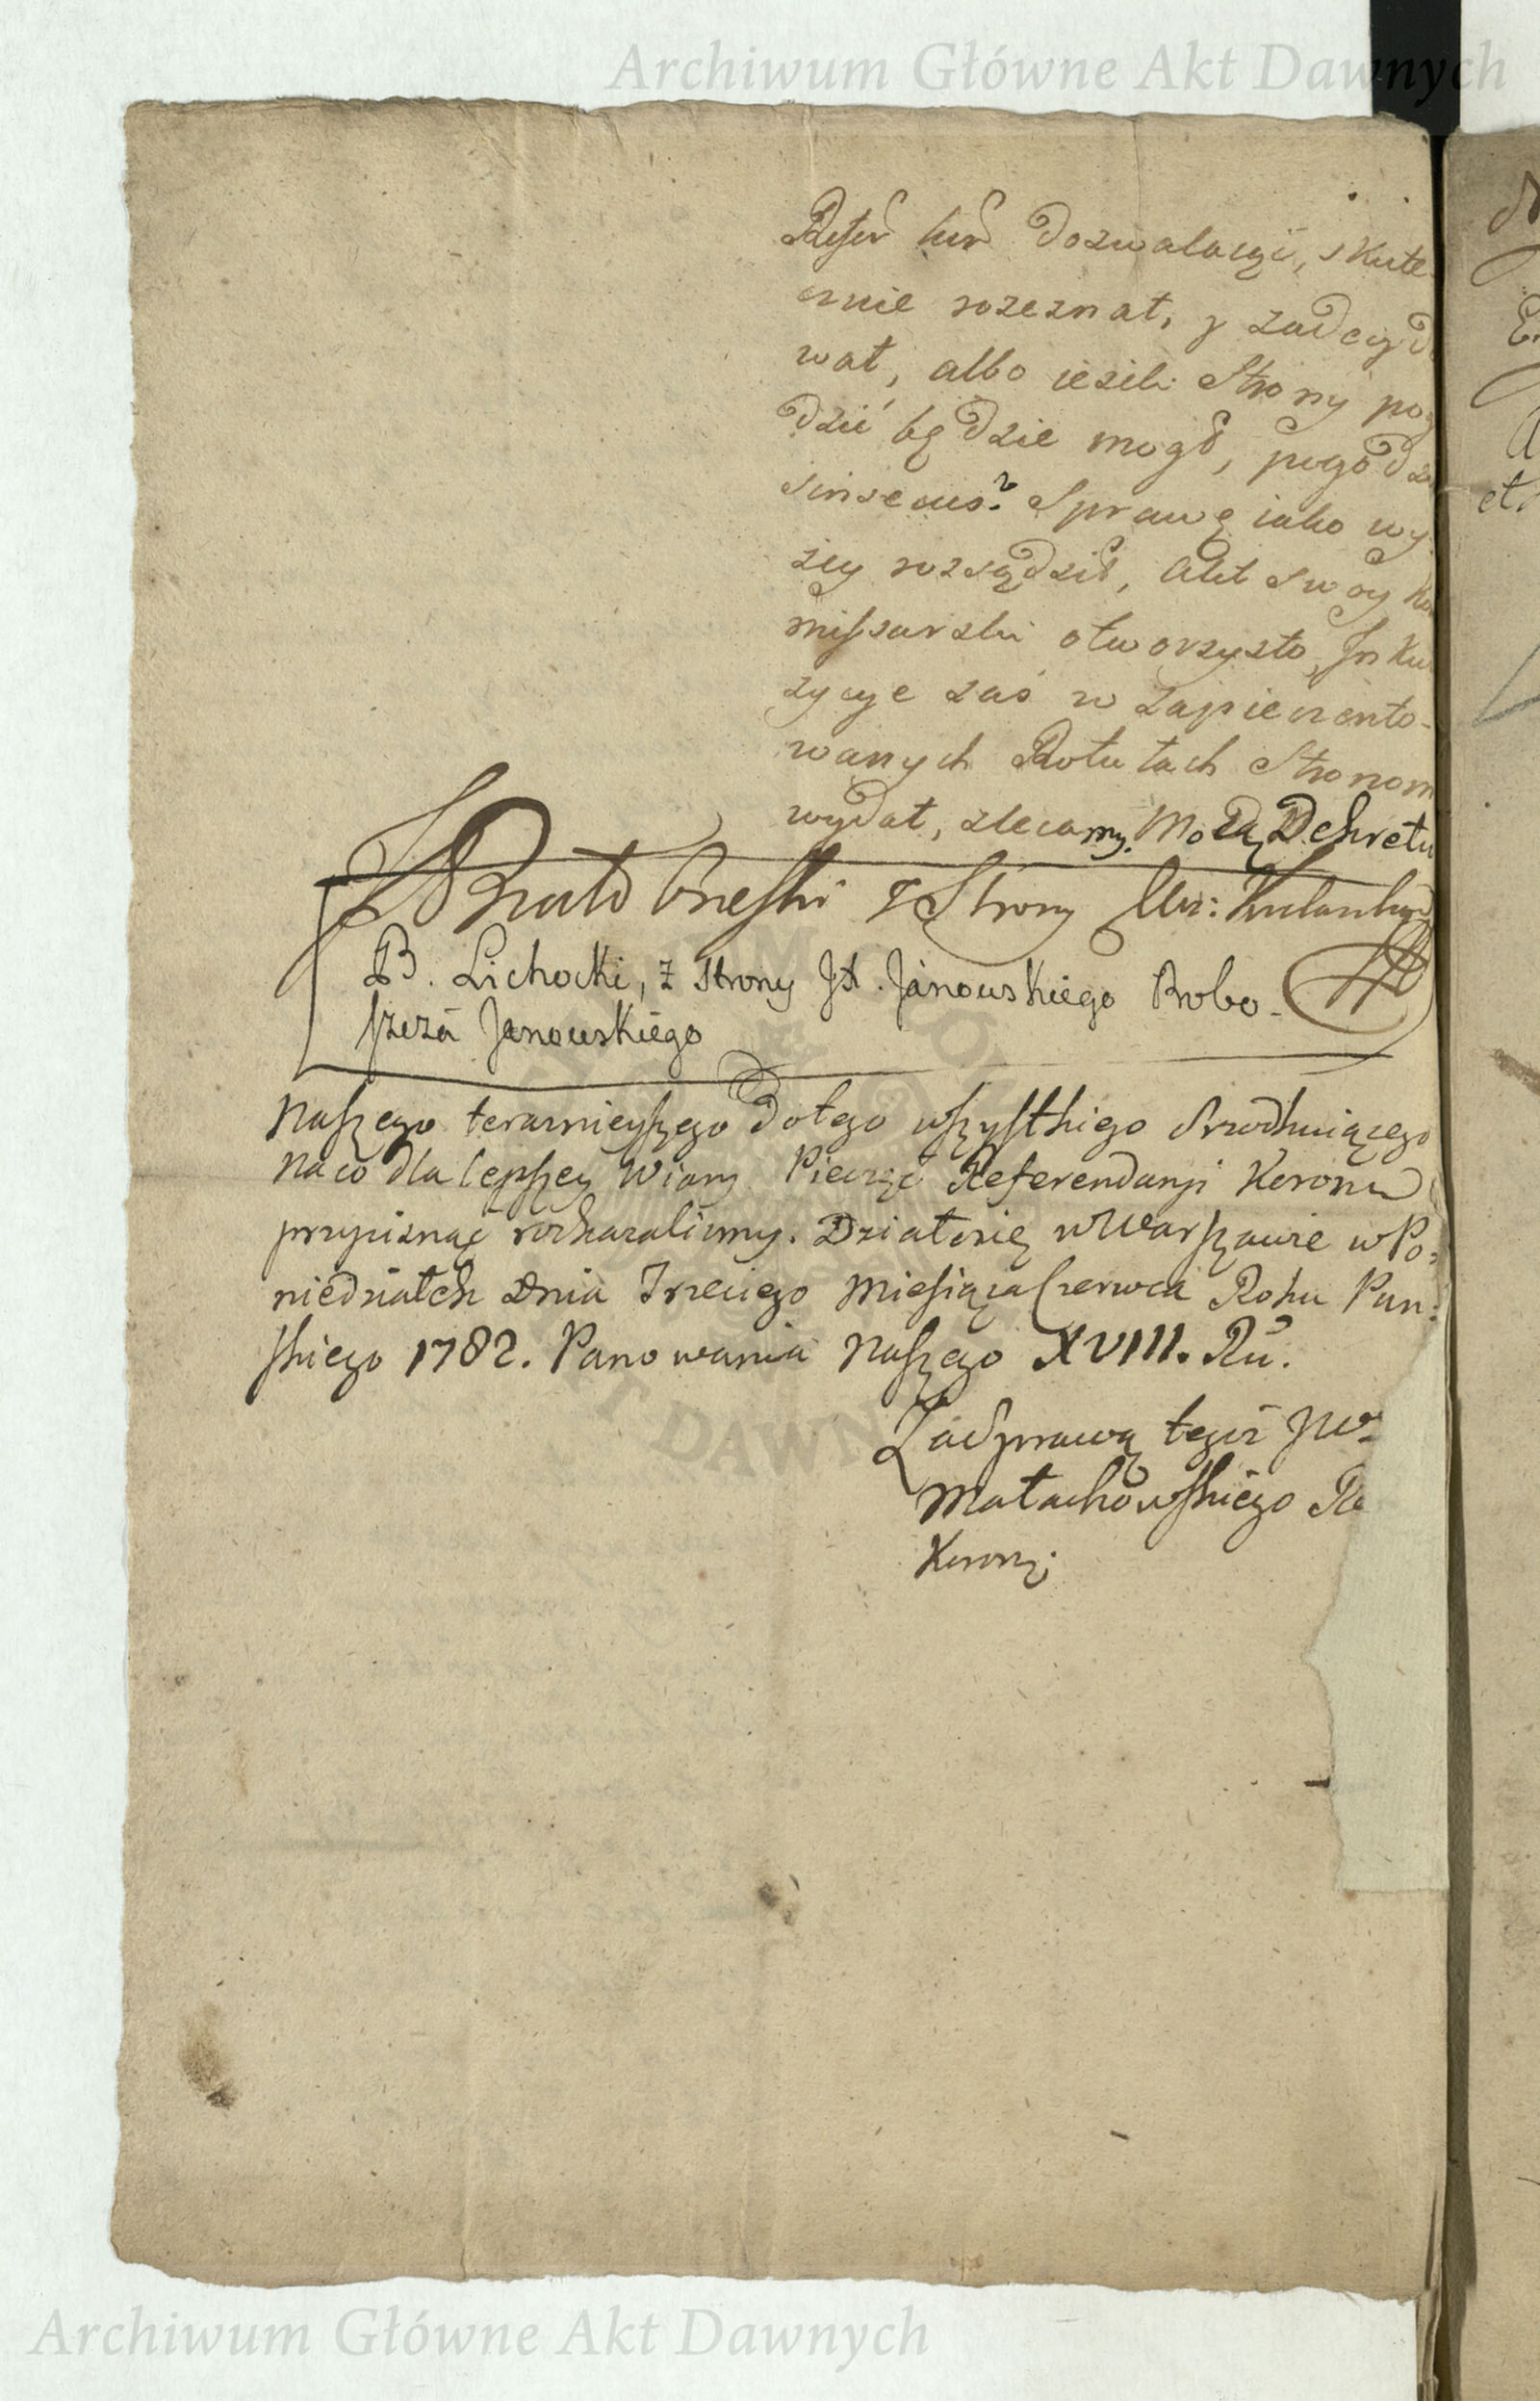 Archiwum Główne Akt Dawnych
dozwalaiąci, skute-
cznie rozeznał, y zadecyd
wał, albo ieżeli Strony pog
dzić będzie mogł, pogodz
Sprawę iako wy-
żey rozsądził, Akt swóy Ko
missarski otworzysto, Inkw
zycye zaś w zapieczento-
wanych Rotutach Stronom
wydał, zlecamy. Mocą Dekretu
z Strony
B. Lichocki, z strony Janowskiego Probo-
szcza Janowskiego
Naszego teraznieyszego do tego wszystkiego Srzodkuiącego
Na co dla lepszey Wiary Pieczęć Referendaryi Koronn
przycisnąć rozkazalismy. Działosię w Warszawie w Po-
niedziałek Dnia Trzeciego Miesiąca Czerwca Roku Pan-
skiego 1782. Panowania Naszego XVIII. Ru.
Za Sprawą tegoż JW
Małachowskiego Re
Koronn:
Archiwum Główne Akt Dawnych